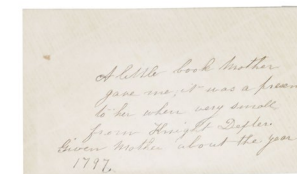 A little book Mother
gave me, it was a present
to her when very small
from Knight Dexter.
Given Mother about the year
1797.